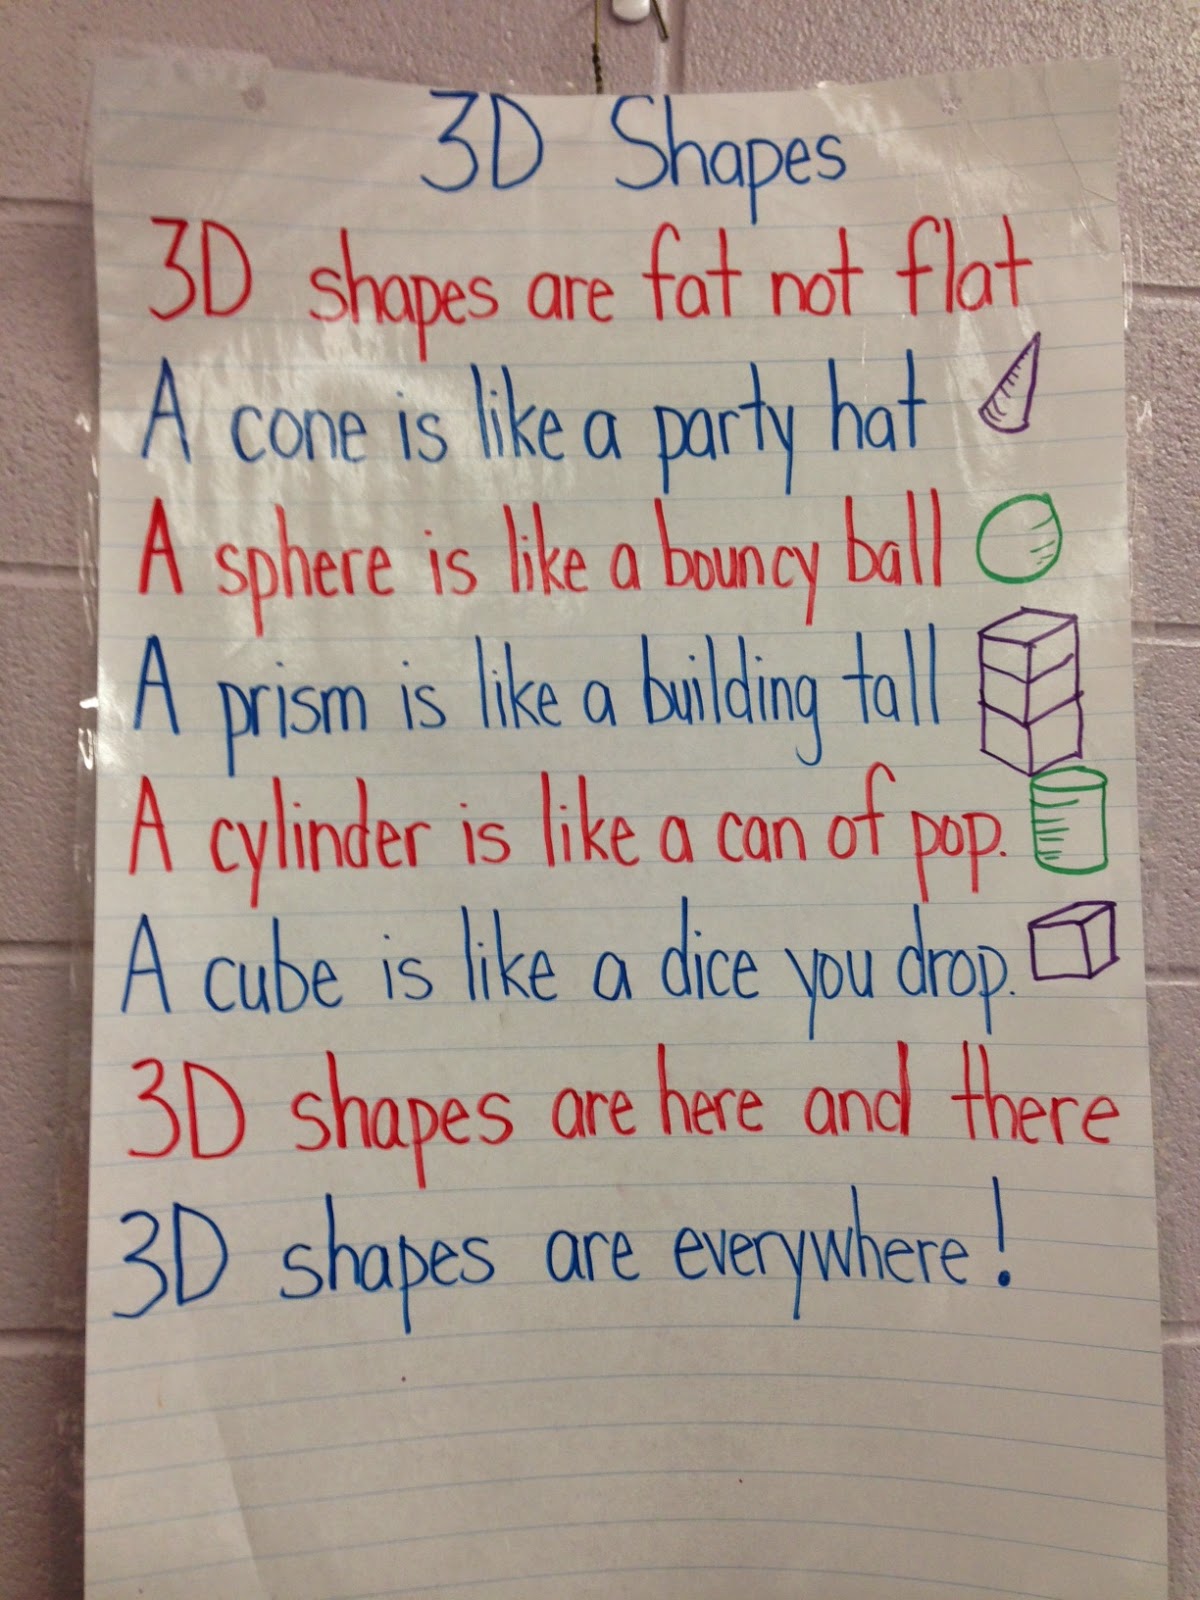 3D Shapes
3D shapes are fat not flat
A cone is like a party hat
A sphere is like a bouncy ball
A prism is like a building tall
A cylinder is like a can of pop.
A cube is like a dice you drop.
3D shapes are here and there
3D shapes are everywhere!